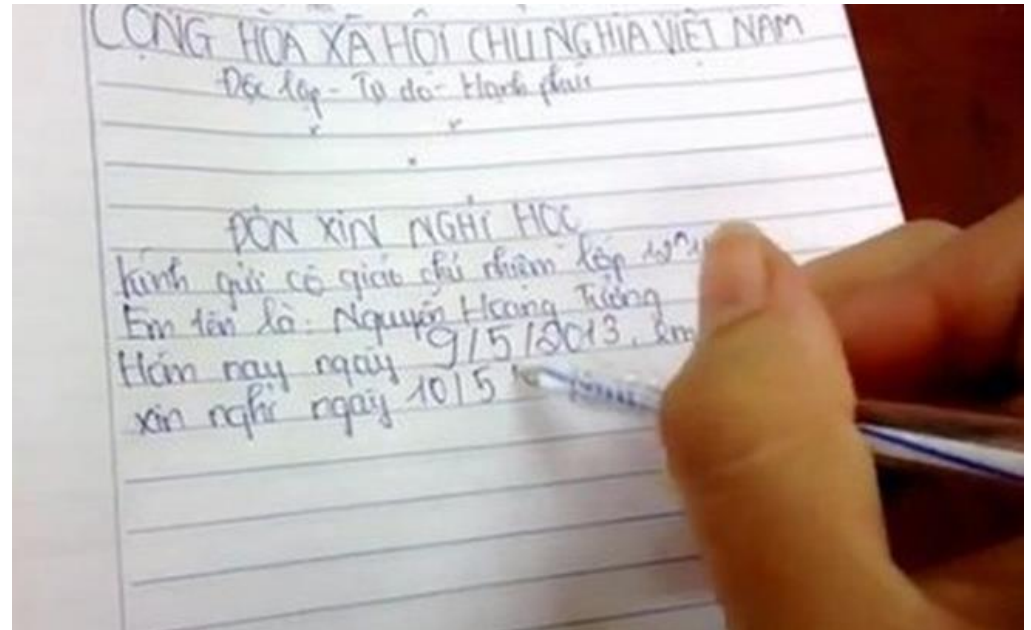 CỘNG HÒA XÃ HỘI CHỦ NGHĨA VIỆT NAM
Độc lập - Tự do - Hạnh phúc
ĐƠN XIN NGHỈ HỌC
Kính gửi cô giáo chủ nhiệm lớp
Em tên là: Nguyễn Hoàng Tưởng
Hôm nay ngày 9/5/2013, em
xin nghỉ ngày 10/5